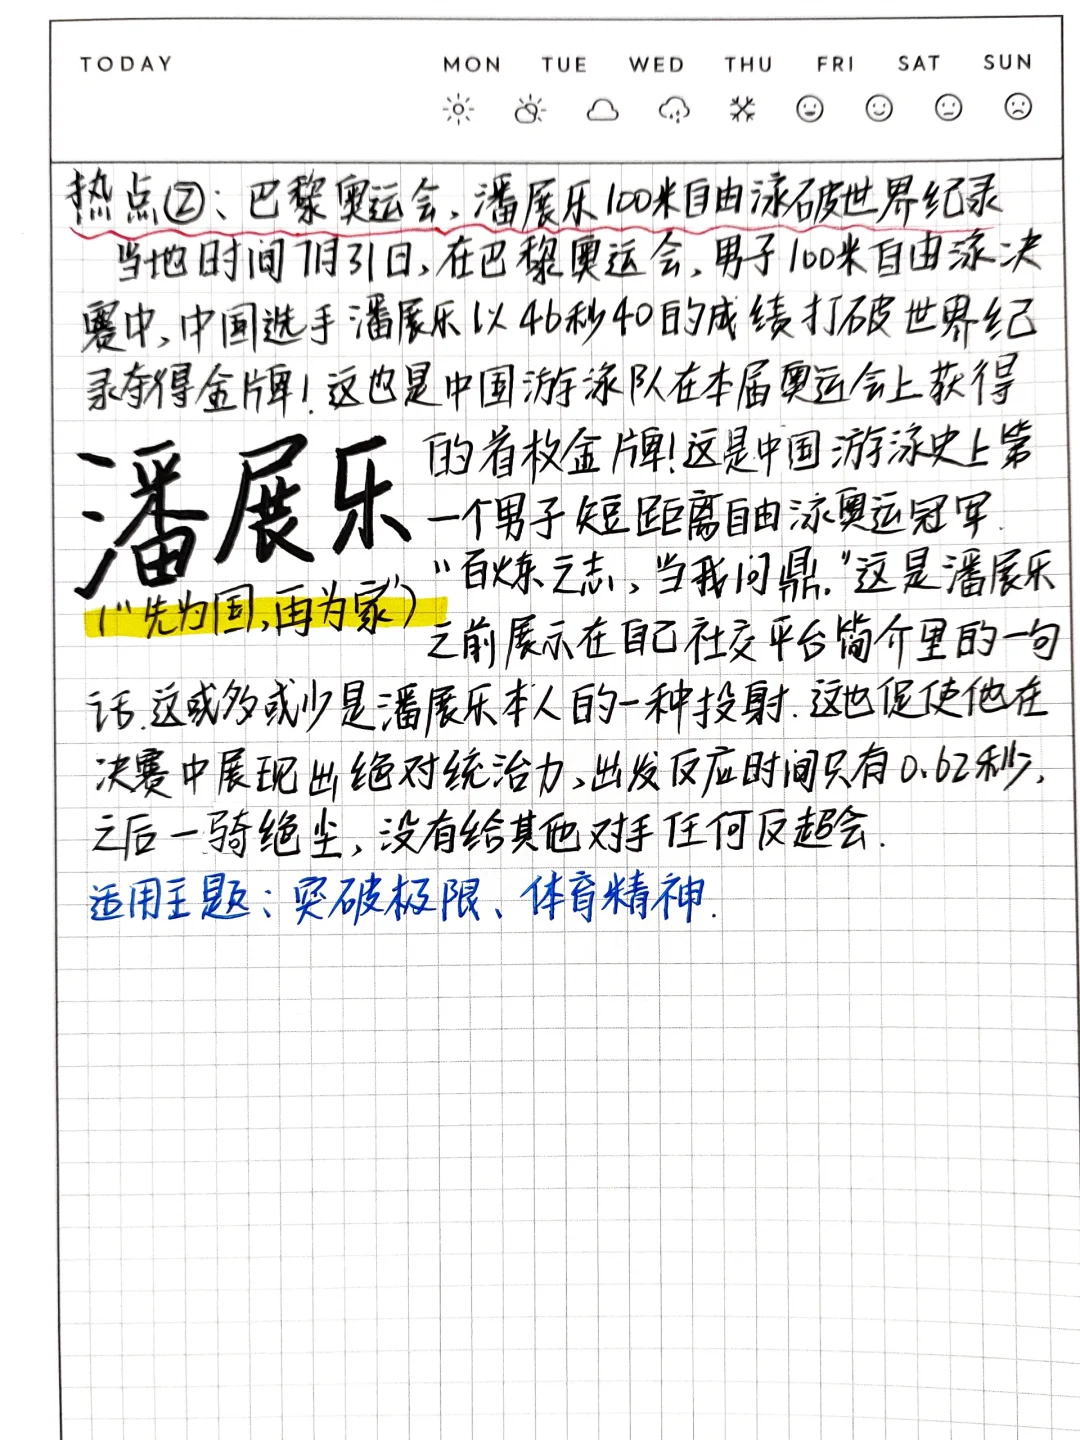 TODAY MON TUE WED THU FRI SAT SUN
热点②:巴黎奥运会,潘展乐100米自由泳破世界纪录
当地时间7月31日,在巴黎奥运会,男子100米自由泳决
赛中,中国选手潘展乐以46秒40的成绩打破世界纪
录夺得金牌!这也是中国游泳队在本届奥运会上获得
的首枚金牌!这是中国游泳史上第
一个男子短距离自由泳奥运冠军.
潘展乐
("先为国,再为家")
"百炼之志,当我问鼎."这是潘展乐
之前展示在自己社交平台简介里的一句
话.这或多或少是潘展乐本人的一种投射.这也促使他在
决赛中展现出绝对统治力,出发反应时间只有0.62秒,
之后一骑绝尘,没有给其他对手任何反超会.
适用主题:突破极限、体育精神.